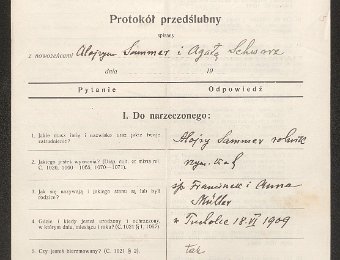 Protokół przedślubny
spisany
z nowożeńcami Alojzym Sammer i Agatą Schwarz
dnia 19
Pytanie Odpowiedź
I. Do narzeczonego:
1. Jakie masz imię i nazwisko oraz jakie twoje
zatrudnienie?
Alojzy Sammer rolnik
2. Jakiego jesteś wyznania? (Dysp. dott. ze mixta rel.
C. 1020, 1060—1065, 1070—1071).
rzym. kat.
3. Jak się nazywają i jakiego stanu są lub byli
rodzice?
śp. Franciszek i Anna
Müller
4. Gdzie i kiedy jesteś urodzony i ochrzczony,
w którym dniu, miesiącu i roku? (C. 1021 § 1, 1097)
18 VI 1909
5. Czy jesteś bierzmowany? (C. 1021 § 2)
tak